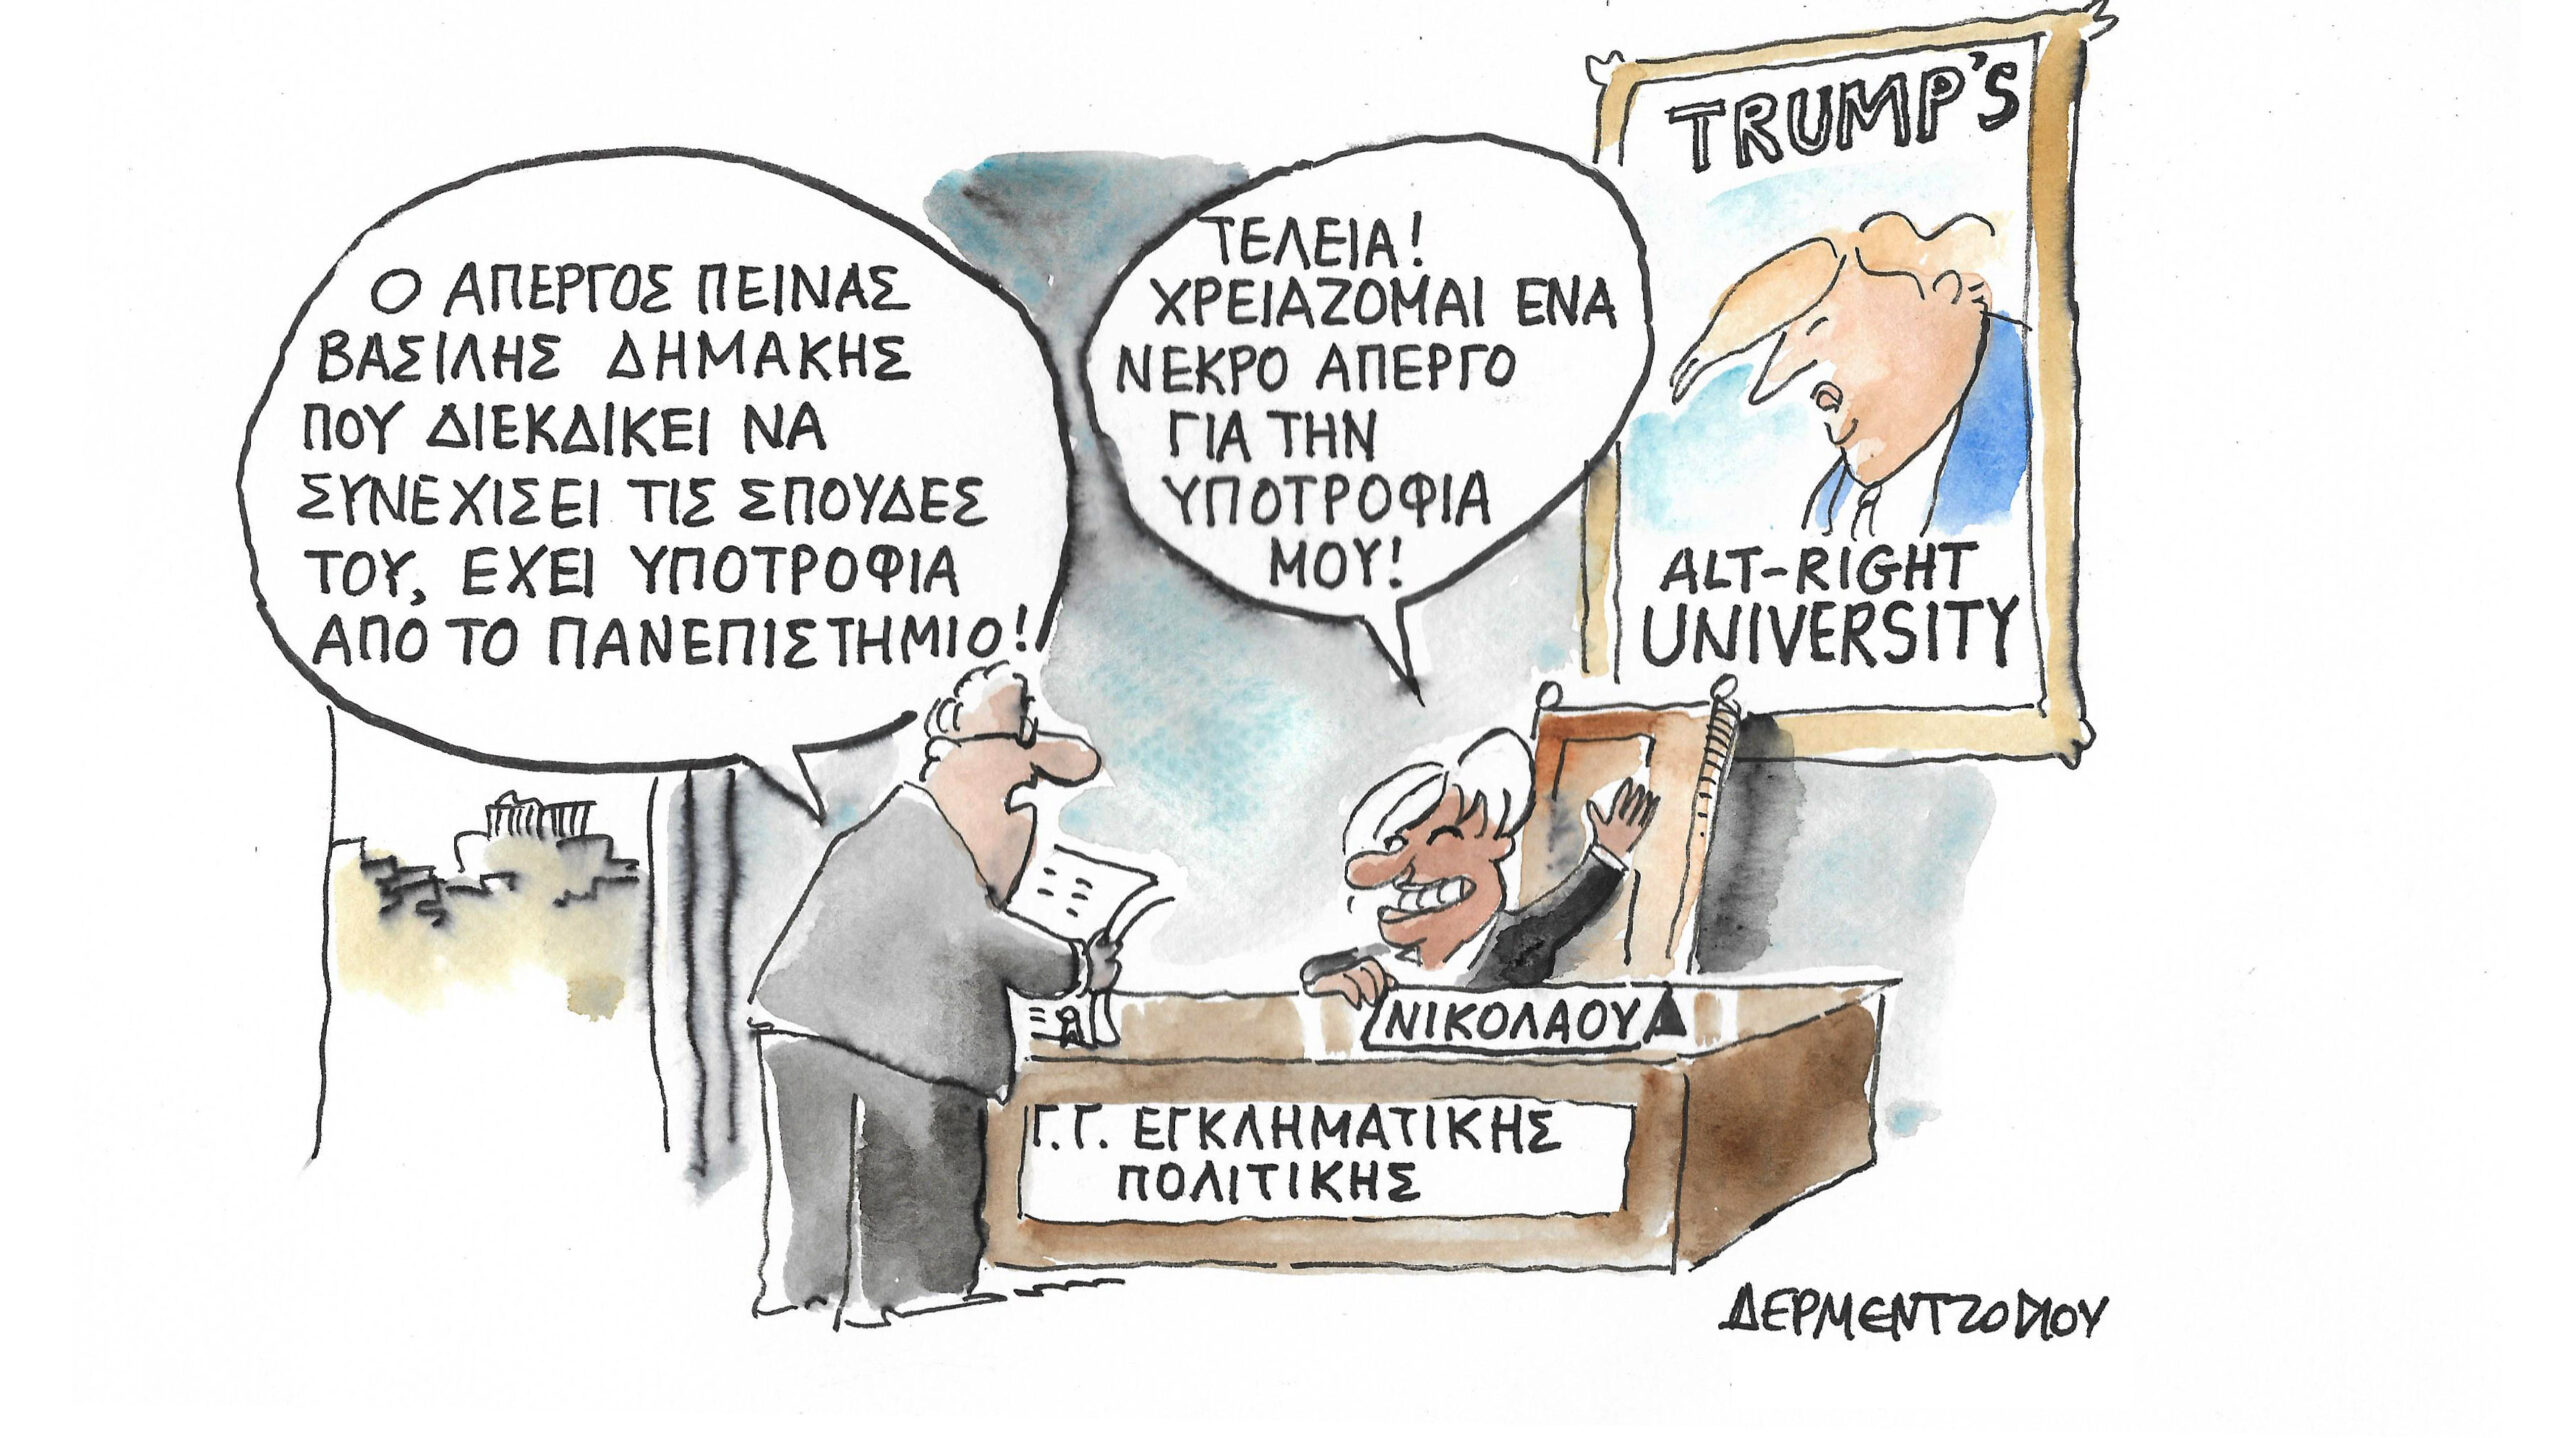 Ο ΑΠΕΡΓΟΣ ΠΕΙΝΑΣ
ΒΑΣΙΛΗΣ ΔΗΜΑΚΗΣ
ΠΟΥ ΔΙΕΚΔΙΚΕΙ ΝΑ
ΣΥΝΕΧΙΣΕΙ ΤΙΣ ΣΠΟΥΔΕΣ
ΤΟΥ, ΕΧΕΙ ΥΠΟΤΡΟΦΙΑ
ΑΠΌ ΤΟ ΠΑΝΕΠΙΣΤΗΜΙΟ!
ΤΕΛΕΙΑ!
ΧΡΕΙΑΖΟΜΑΙ ΕΝΑ
ΝΕΚΡΟ ΑΠΕΡΓΟ
ΓΙΑ ΤΗΝ
ΥΠΟΤΡΟΦΙΑ
ΜΟΥ!
TRUMP'S
ALT-RIGHT
UNIVERSITY
ΝΙΚΟΛΑΟΥ
Γ.Γ. ΕΓΚΛΗΜΑΤΙΚΗΣ
ΠΟΛΙΤΙΚΗΣ
ΔΕΡΜΕΝΤΖΟΓΛΟΥ